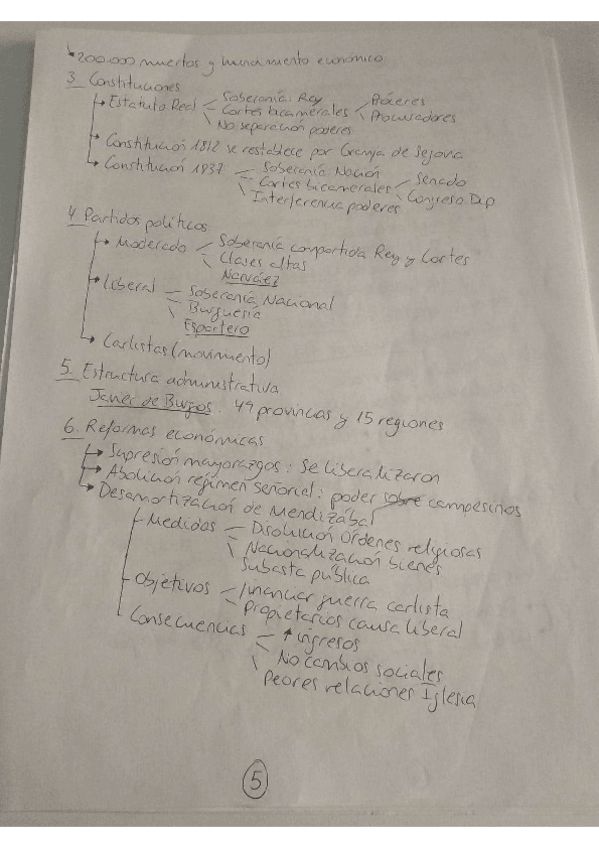 ↳ 200.000 muertos y hundimiento económico
3. Constituciones
→ Estatuto Real
Soberanía: Rey
Cortes bicamerales
Próceres
Procuradores
No separación poderes
→ Constitución 1812 se restablece por Granja de Segovia
→ Constitución 1937
Soberanía: Nación
Cortes bicamerales
Senado
Congreso Dip
Interferencia poderes
4 Partidos políticos
→ Moderado
Soberanía compartida Rey y Cortes
Clases altas
Narváez
→ Liberal
Soberanía Nacional
Burguesía
Espartero
→ Carlistas (movimiento)
5. Estructura administrativa
Javier de Burgos: 49 provincias y 15 regiones
6. Reformas económicas
→ Supresión mayorazgos: se liberalizaron
→ Abolición régimen señorial: poder sobre campesinos
→ Desamortización de Mendizábal
Medidas
Disolución órdenes religiosas
Nacionalización bienes
Subasta pública
Objetivos
Financiar guerra carlista
Propietarios causa liberal
Consecuencias
↑ ingresos
No cambios sociales
Peores relaciones Iglesia
5